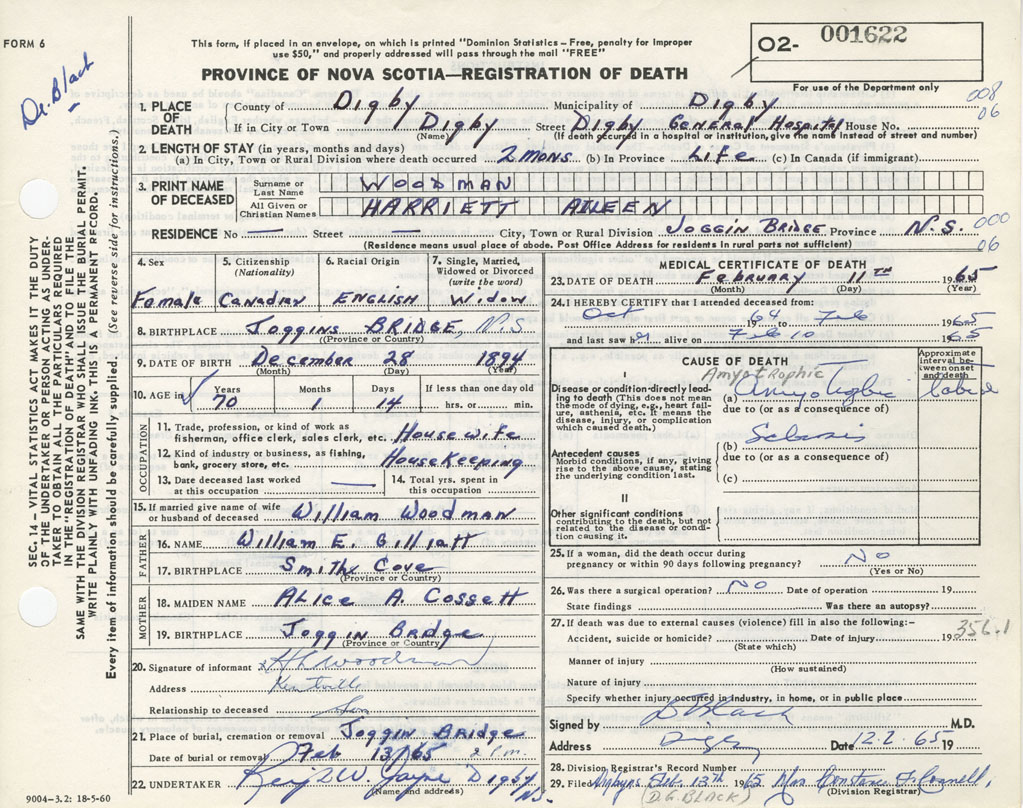 FORM 6
Dr. Black
This form, if placed in an envelope, on which is printed "Dominion Statistics - Free, penalty for improper
use $50," and properly addressed will pass through the mail "FREE"
PROVINCE OF NOVA SCOTIA—REGISTRATION OF DEATH
02- 001622
For use of the Department only
008
06
1. PLACE OF DEATH
County of Digby Municipality of Digby
If in City or Town Digby Street Digby General Hospital House No.
(Name) (If death occurred in a hospital or institution, give its name instead of street and number)
2. LENGTH OF STAY (in years, months and days)
(a) In City, Town or Rural Division where death occurred 2 mons (b) In Province Life (c) In Canada (if immigrant)
3. PRINT NAME OF DECEASED
Surname or Last Name WOODMAN
All Given or Christian Names HARRIETT AILEEN
RESIDENCE No — Street — City, Town or Rural Division Joggin Bridge Province N.S. 000
06
(Residence means usual place of abode. Post Office Address for residents in rural parts not sufficient)
4. Sex
Female
5. Citizenship (Nationality)
Canadian
6. Racial Origin
ENGLISH
7. Single, Married, Widowed or Divorced (write the word)
Widow
8. BIRTHPLACE Joggins BRIDGE, N.S
(Province or Country)
9. DATE OF BIRTH December 28 1894
(Month) (Day) (Year)
10. AGE in Years Months Days If less than one day old
70 1 14 hrs. or min.
OCCUPATION
11. Trade, profession, or kind of work as
fisherman, office clerk, sales clerk, etc. Housewife
12. Kind of industry or business, as fishing,
bank, grocery store, etc. HouseKeeping
13. Date deceased last worked at this occupation —
14. Total yrs. spent in this occupation
15. If married give name of wife or husband of deceased William Woodman
FATHER
16. NAME William E. Gilliatt
17. BIRTHPLACE Smiths Cove
(Province or Country)
MOTHER
18. MAIDEN NAME ALICE A. Cossett
19. BIRTHPLACE Joggin Bridge
(Province or Country)
20. Signature of informant x H L Woodman
Address Kentville
Relationship to deceased Son
21. Place of burial, cremation or removal Joggin Bridge
Date of burial or removal Feb 13/65 2 P.m.
22. UNDERTAKER W. Jayne Digby N.S.
(Name and address)
9004-3.2: 18-5-60
MEDICAL CERTIFICATE OF DEATH
23. DATE OF DEATH February 11TH 1965
(Month) (Day) (Year)
24. I HEREBY CERTIFY that I attended deceased from:
Oct 1964 to Feb 1965
and last saw her alive on Feb 10 1965
CAUSE OF DEATH
Approximate interval between onset and death
I
Amyotrophic
Disease or condition directly leading to death (This does not mean the mode of dying, e.g., heart failure, asthenia, etc. It means the disease, injury, or complication which caused death.)
(a)
due to (or as a consequence of)
Sclerosis
(b)
due to (or as a consequence of)
(c)
Antecedent causes
Morbid conditions, if any, giving rise to the above cause, stating the underlying condition last.
II
Other significant conditions
contributing to the death, but not related to the disease or condition causing it.
25. If a woman, did the death occur during
pregnancy or within 90 days following pregnancy? No
(Yes or No)
26. Was there a surgical operation? No Date of operation 19
State findings Was there an autopsy?
27. If death was due to external causes (violence) fill in also the following:-
Accident, suicide or homicide? Date of injury 19 356.1
(State which)
Manner of injury
(How sustained)
Nature of injury
Specify whether injury occurred in industry, in home, or in public place
Signed by D Black M.D.
Address Digby Date 12.2.65 19
28. Division Registrar's Record Number
29. Filed Digby N.S. Feb. 13th 1965 Mrs. Constance F. Connell
(Division Registrar)
(D.G. BLACK)
SEC. 14 - VITAL STATISTICS ACT MAKES IT THE DUTY
OF THE UNDERTAKER OR PERSON ACTING AS UNDER-
TAKER TO OBTAIN ALL THE PARTICULARS REQUIRED
IN THE "REGISTRATION OF DEATH" AND TO FILE THE
SAME WITH THE DIVISION REGISTRAR WHO SHALL ISSUE THE BURIAL PERMIT.
WRITE PLAINLY WITH UNFADING INK. THIS IS A PERMANENT RECORD.
Every item of information should be carefully supplied. (See reverse side for instructions.)